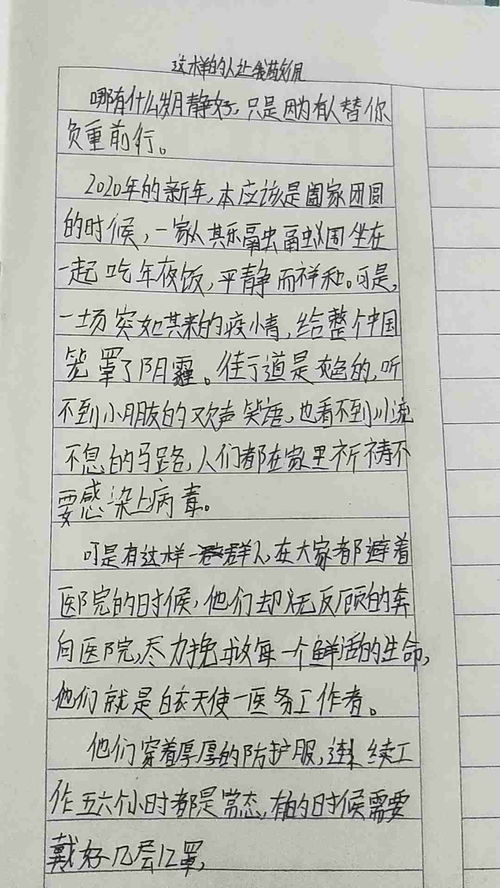 这样的人让我敬佩
哪有什么岁月静好,只是因为有人替你
负重前行。
2020年的新年,本应该是阖家团圆
的时候,一家人其乐融融围坐在
一起吃年夜饭,平静而祥和。可是,
一场突如其来的疫情,给整个中国
笼罩了阴霾。街道是灰色的,听
不到小朋友的欢声笑语,也看不到川流
不息的马路,人们都在家里祈祷不
要感染上病毒。
可是有这样一群人在大家都避着
医院的时候,他们却无反顾的奔
向医院,尽力挽救每一个鲜活的生命,
他们就是白衣天使一医务工作者。
他们穿着厚厚的防护服,连续工
作五六个小时都是常态,有的时候需要
戴好几层口罩,